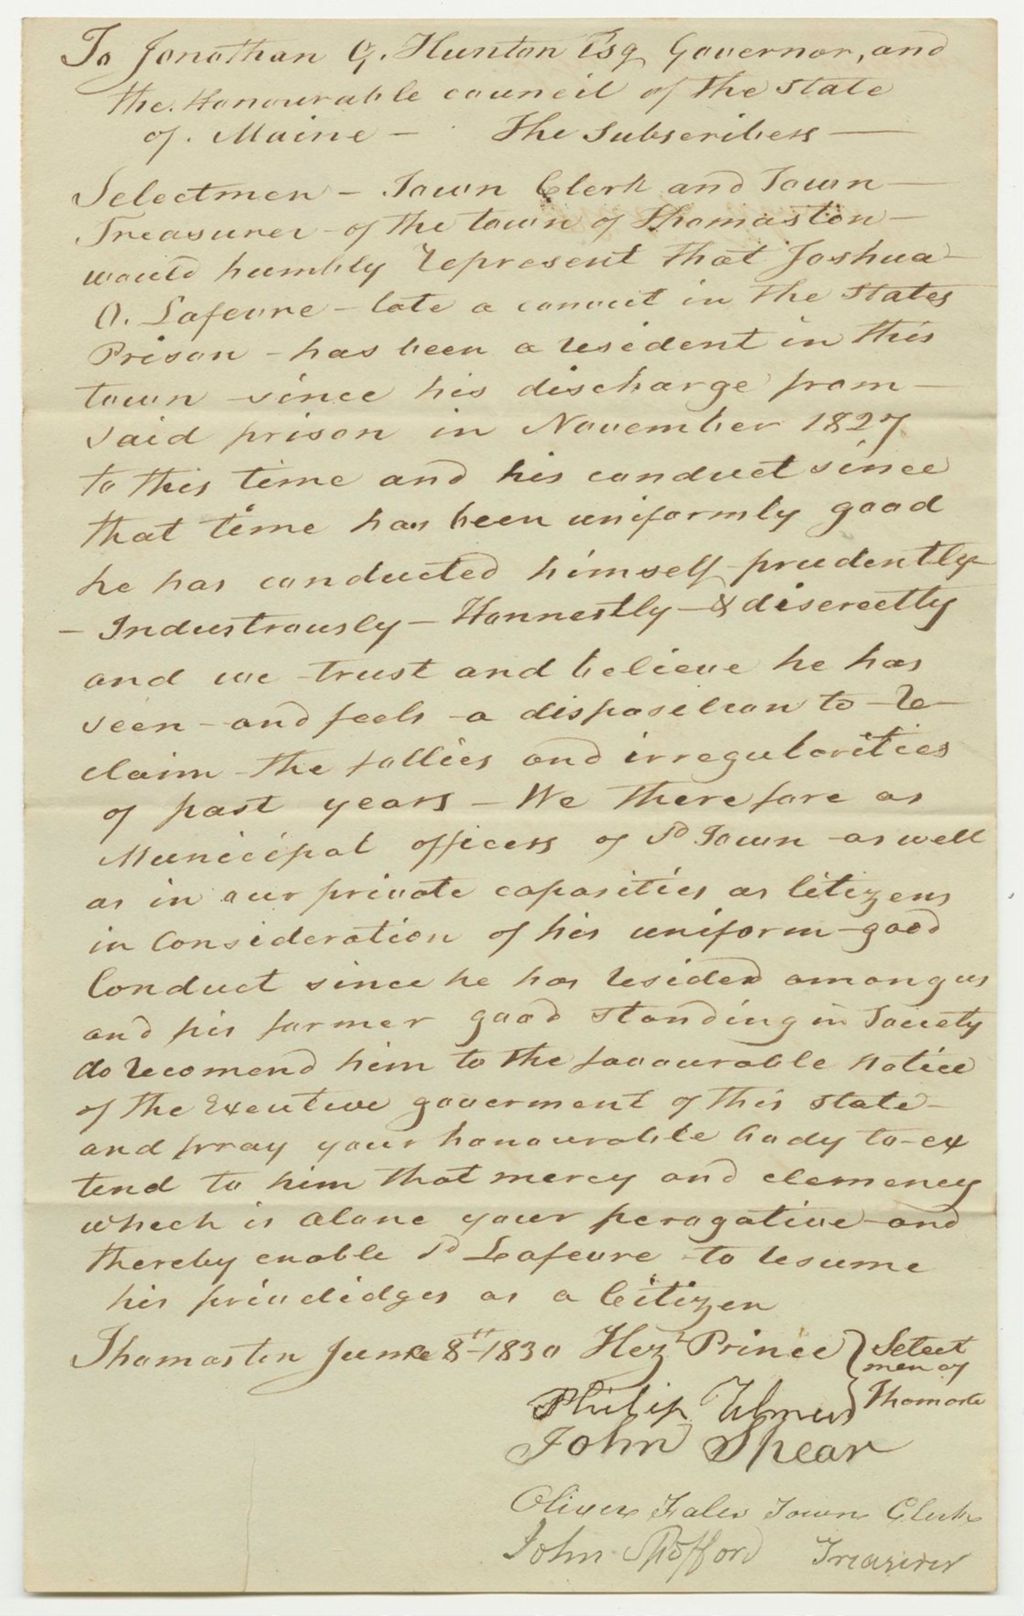 To Jonathan G. Hunton Esq Governor, and
the Honourable council of the state
of Maine – The Subscribers —
Selectmen – Town Clerk and Town —
Treasurer – of the town of Thomaston –
would humbly represent that Joshua –
O. Lafevre – late a convict in the States
Prison – has been a resident in this
town – since his discharge from –
said prison in November 1827
to this time and his conduct since
that time has been uniformly good
he has conducted himself prudently –
– Industrously – Honnestly – & discreetly
and we trust and believe he has
seen – and feels – a disposition to – re –
claim the follies and irregularities
of past years – We therefore as
Municipal officers of sd Town – as well
as in our private capasities as Citizens
in Consideration of his uniform – good
Conduct since he has resided among us
and his former good standing in Society
do recomend him to the favourable notice
of the Executive goverment of this state –
and pray your honourable body to – ex
tend to him that mercy and clemency
which is alone your peragative – and
thereby enable sd Lafevre to resume
his priviledges as a Citizen
Thomaston June 8th 1830 Hezh Prince } Select
men of
Philip Ulmer Thomaston
John Spear
Oliver Fales Town Clerk
John Spofford Treasurer